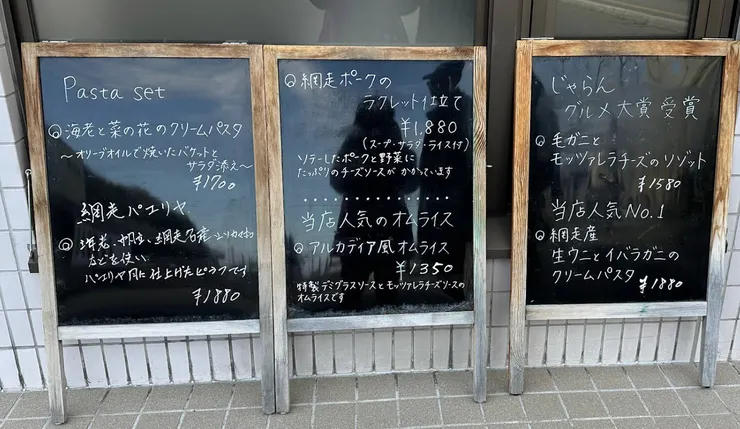 Pasta set
海老と菜の花のクリームパスタ
〜オリーブオイルで焼いたバケットと
サラダ添え〜
¥1700
網走パエリヤ
などを使い
パエリヤ風に仕上げたピラフです
¥1880
網走ポークの
ラクレット仕立て
¥1,880
(スープ・サラダ・ライス付)
ソテーしたポークと野菜に
たっぷりのチーズソースがかかっています
当店人気のオムライス
アルカディア風オムライス
¥1350
特製デミグラスソースとモッツァレラチーズソースの
オムライスです
じゃらん
グルメ大賞受賞
毛ガニと
モッツァレラチーズのリゾット
¥1580
当店人気No.1
網走産
生ウニとイバラガニの
クリームパスタ ¥1880